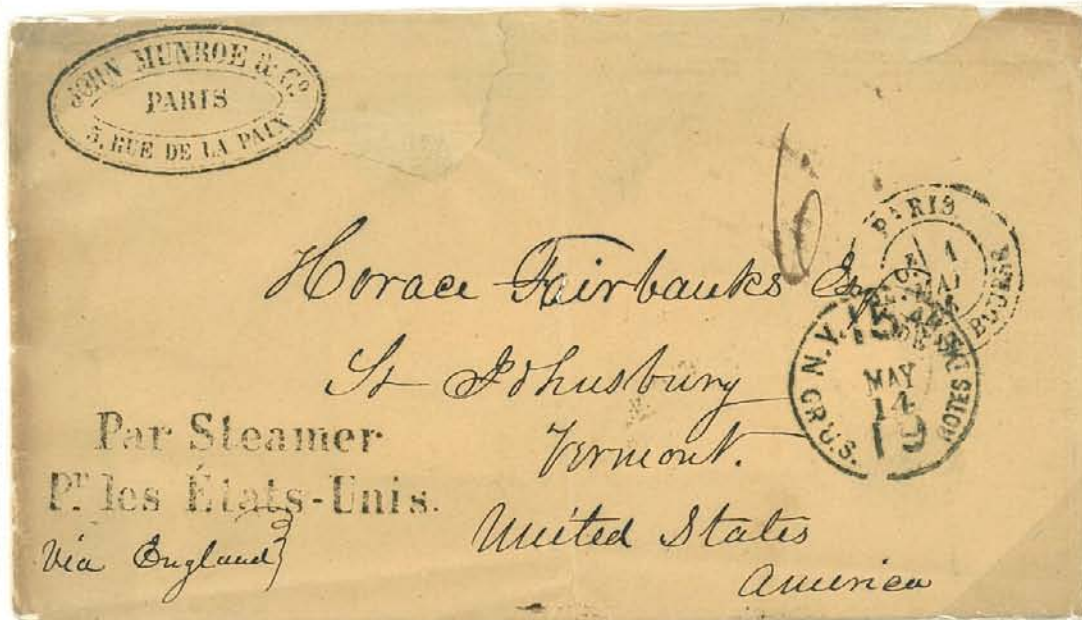 JOHN MUNROE & Co
PARIS
5, RUE DE LA PAIX
6
PARIS
1
MAI
BOURSE
Horace Fairbanks Esq
St Johnsbury
Vermont.
United States
America
15
N.Y.
MAY
14
19
OR U.S. NOTES
Par Steamer
Pr. les États-Unis.
Via England